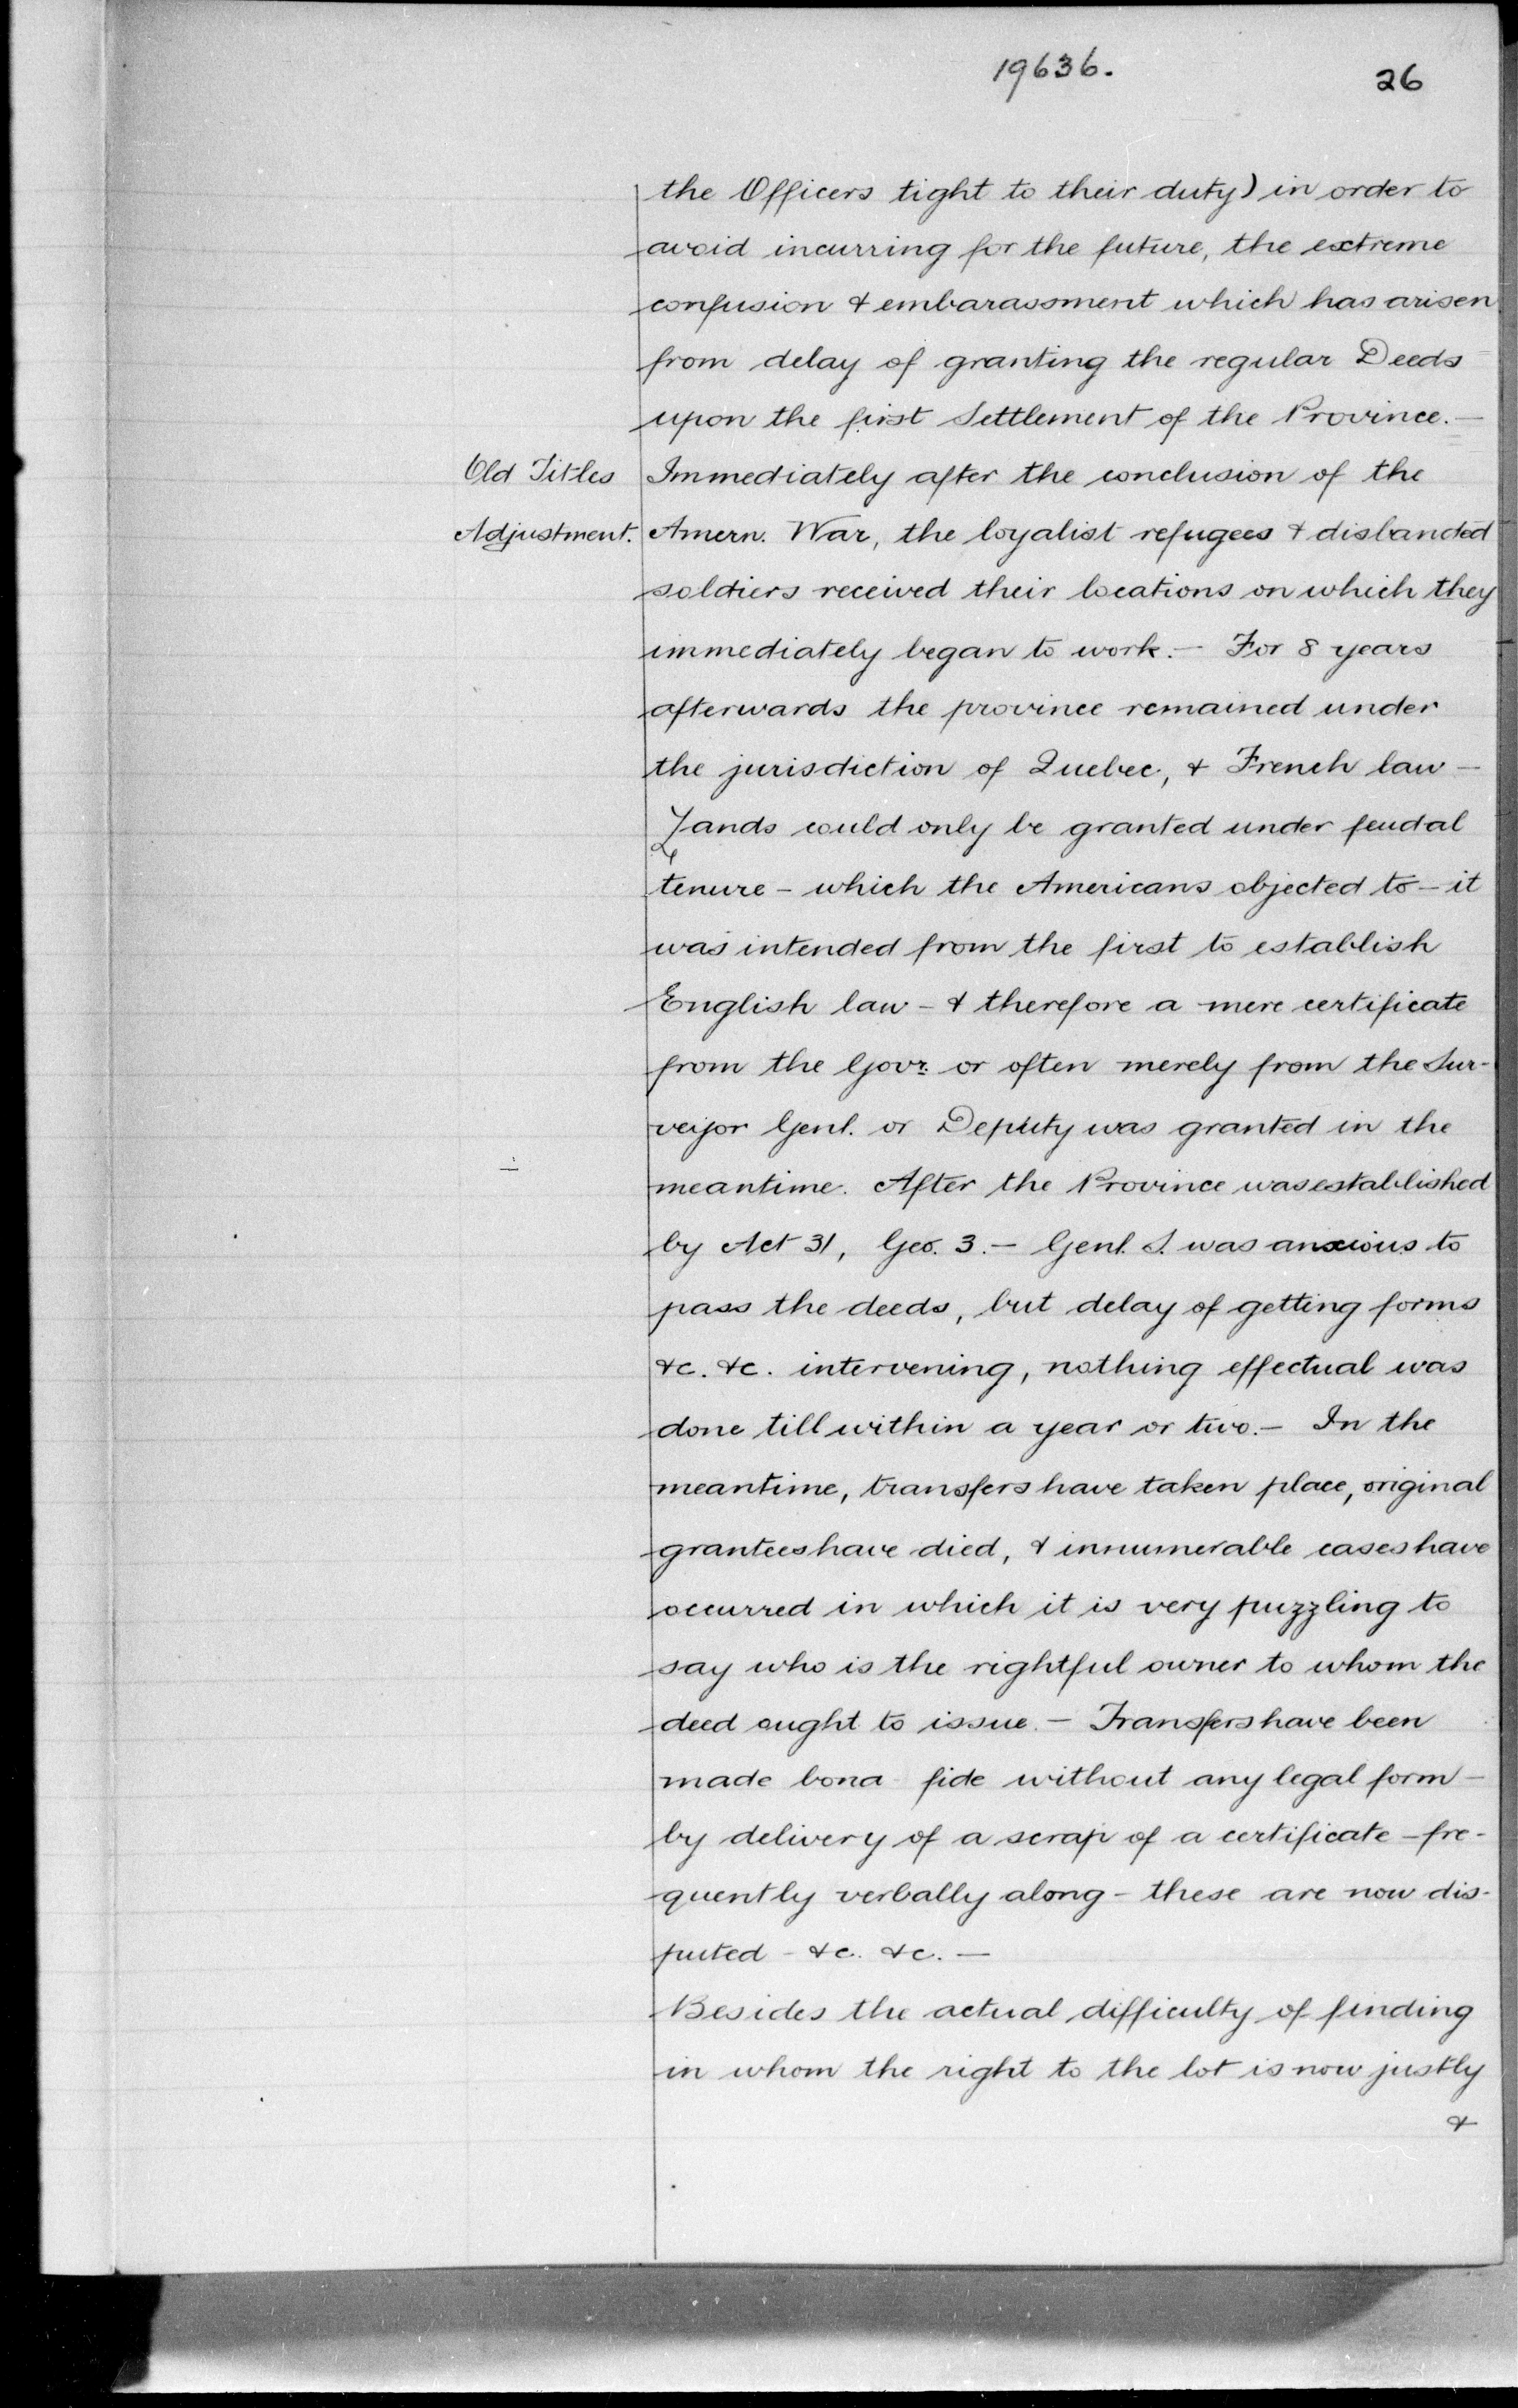 19636.
26
the Officers tight to their duty) in order to
avoid incurring for the future, the extreme
confusion & embarassment which has arisen
from delay of granting the regular Deeds
upon the first Settlement of the Province.—
Old Titles
Adjustment.
Immediately after the conclusion of the
Amern. War, the loyalist refugees & disbanded
soldiers received their locations on which they
immediately began to work.— For 8 years
afterwards the province remained under
the jurisdiction of Quebec, & French law —
Lands could only be granted under feudal
tenure – which the Americans objected to – it
was intended from the first to establish
English law – & therefore a mere certificate
from the Govr. or often merely from the Sur-
veyor Genl. or Deputy was granted in the
meantime. After the Province was established
by Act 31, Geo. 3.— Genl. S. was anxious to
pass the deeds, but delay of getting forms
&c. &c. intervening, nothing effectual was
done till within a year or two.— In the
meantime, transfers have taken place, original
grantees have died, & innumerable cases have
occurred in which it is very puzzling to
say who is the rightful owner to whom the
deed ought to issue.— Transfers have been
made bona fide without any legal form –
by delivery of a scrap of a certificate – fre-
quently verbally along – these are now dis-
puted – &c. &c.—
Besides the actual difficulty of finding
in whom the right to the lot is now justly
&